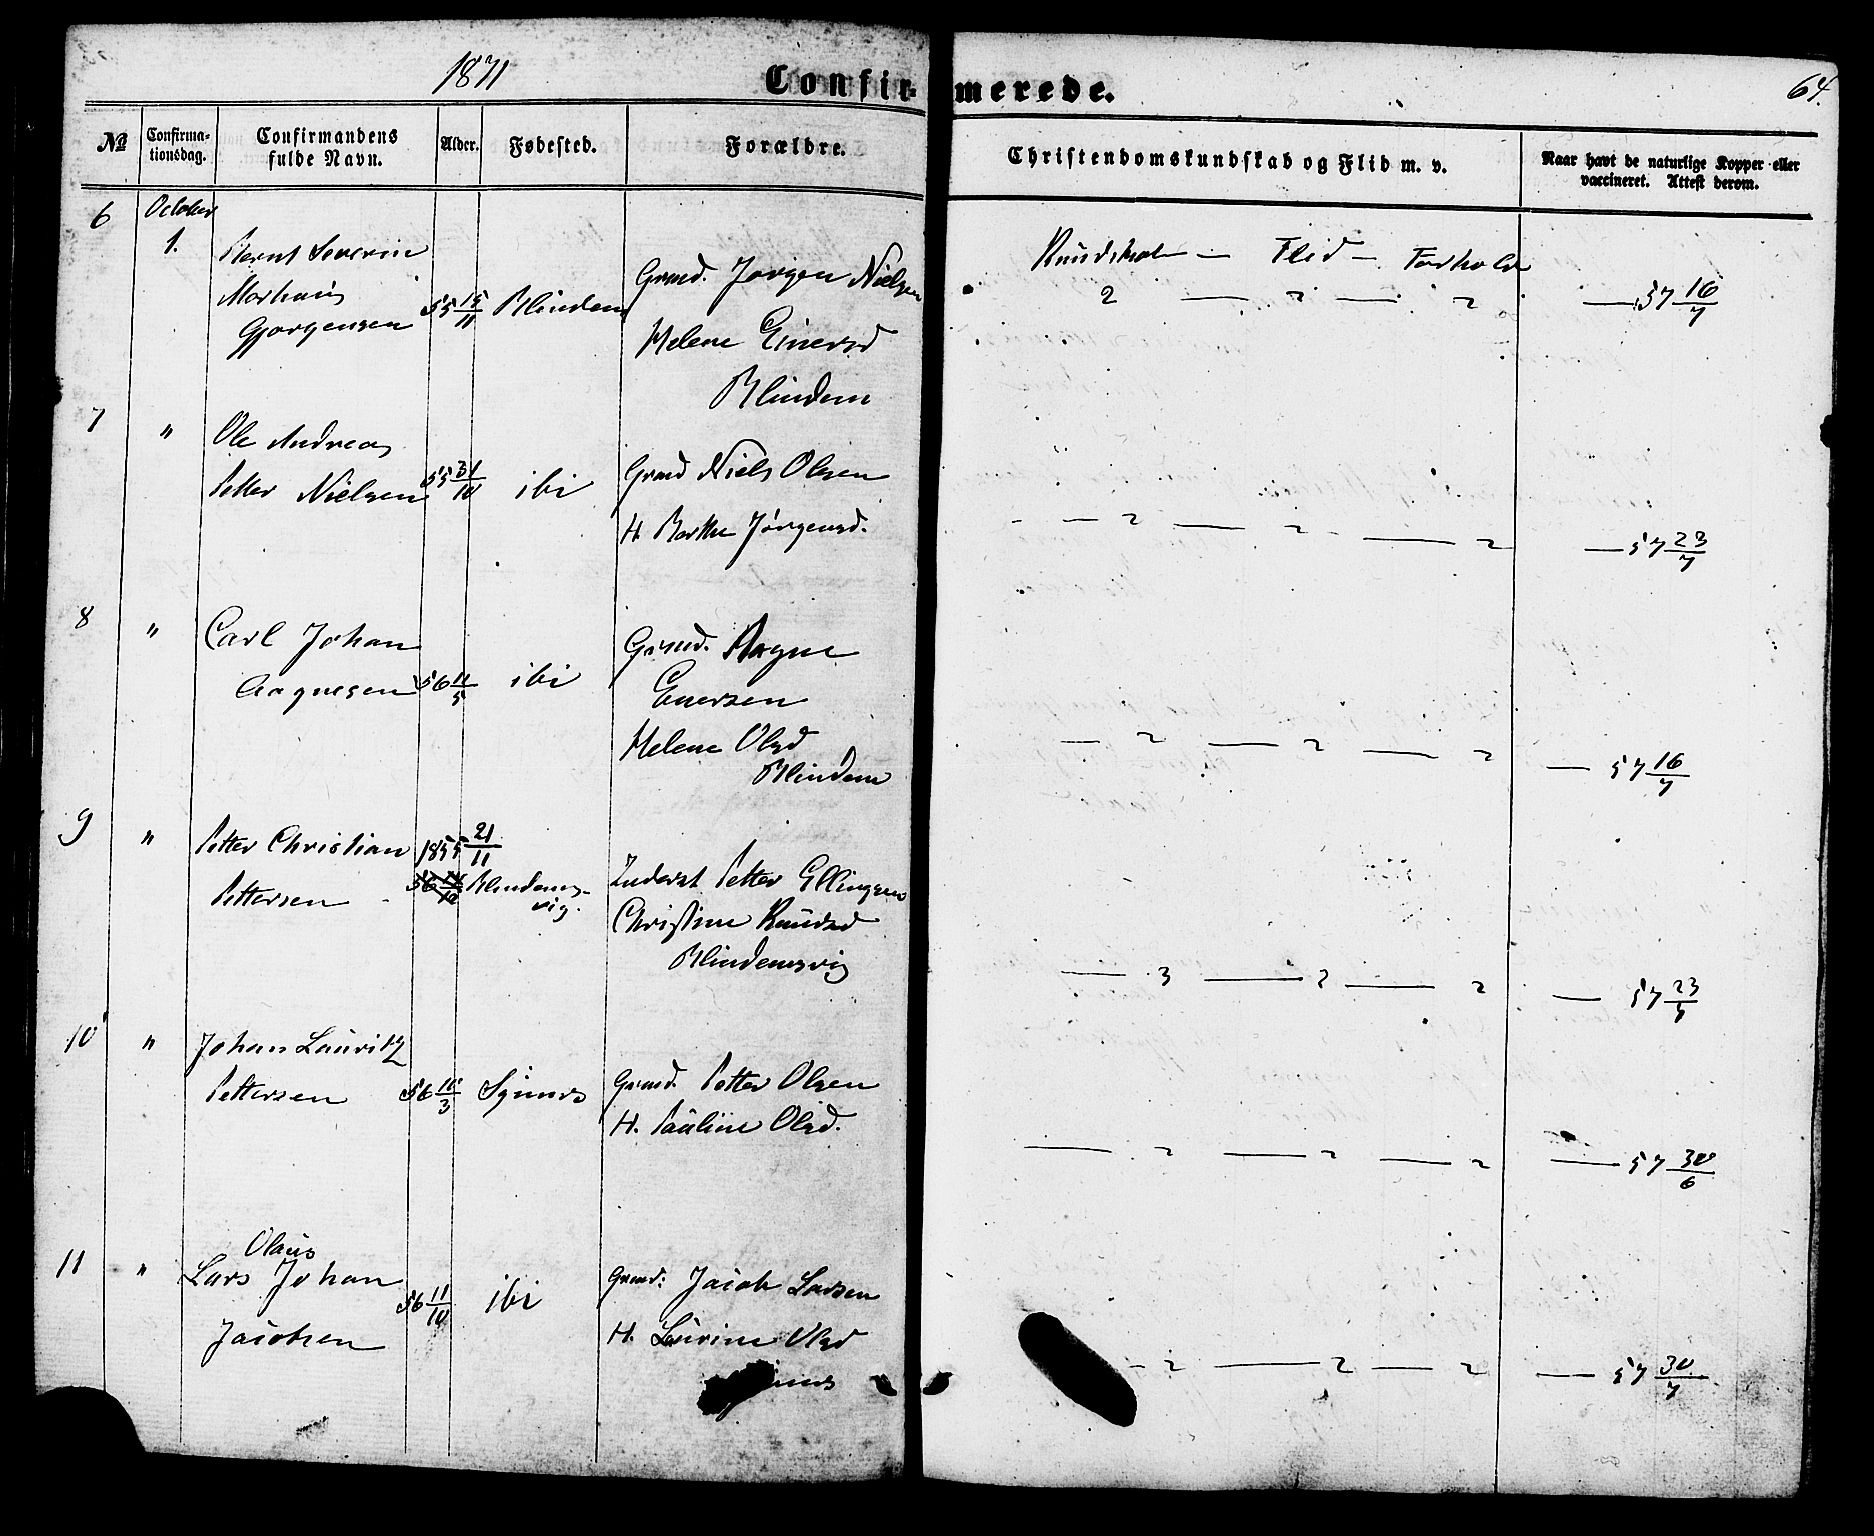 1871
Confir-merede.
64.
No
Confirma-
tionsdag.
Confirmandens
fulde Navn.
Alder.
Fødested.
Forældre.
Christendomskundskab og Flid m. v.
Naar havt de naturlige Kopper eller
vaccineret. Attest derom.
6
October
1.
Bernt Severin
Gjørgensen
55 15/11
Blindem
Grmd. Jørgen Nielsen
Helene Einersd
Blindem
Kundskab — Flid — Forhold
2 — 2 — 2
— 57 16/7
7
"
Ole Andreas
Petter Nielsen
55 31/10
ibi
Grmd Niels Olsen
H. Berthe Jørgensd.
— 2 — 2 — 2
— 57 23/7
8
"
Carl Johan
Aagnesen
56 11/5
ibi
Grmd. Aagne
Enersen
Helene Olsd
Blindem
— 2 — 2 — 2
— 57 16/7
9
"
Petter Christian
Pettersen
1855 21/11
Blindems-
vig.
Inderst Petter Ellingsen
Christine Knudsd
Blindemsvig
— 3 — 2 — 2
— 57 23/7
10
"
Johan Lauritz
Pettersen
56 10/3
Synnes
Grmd. Petter Olsen
H. Pauline Olsd.
— 2 — 2 — 2
— 57 30/6
11
"
Olaus
Lars Johan
Jacobsen
56 11/10
ibi
Grmd: Jacob Larsen
H. Laurine Olsd
— 2 — 2 — 2
— 57 30/7